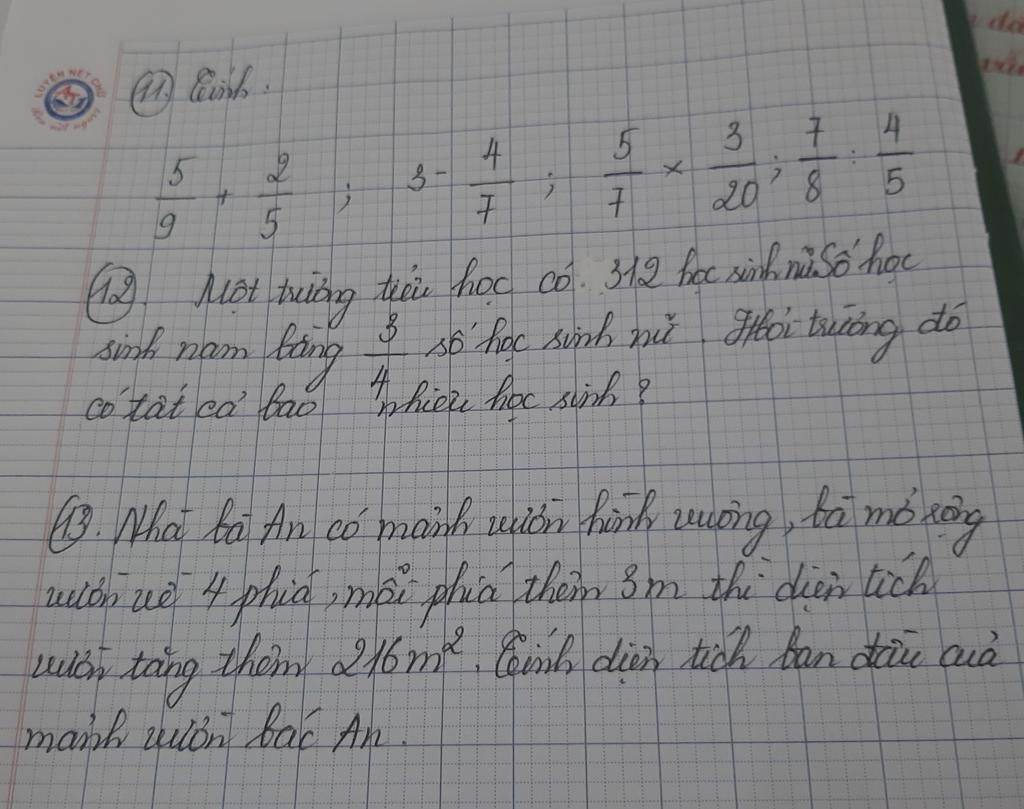 LUYỆN NÉT CHỮ
11. Tính.
5/9 + 2/5 ; 3 - 4/7 ; 5/7 × 3/20 ; 7/8 : 4/5
12. Một trường tiểu học có 312 học sinh nữ. Số học
sinh nam bằng 3/4 số học sinh nữ. Hỏi trường đó
có tất cả bao nhiêu học sinh?
13. Nhà bà An có mảnh vườn hình vuông, bà mở rộng
vườn về 4 phía, mỗi phía thêm 3m thì diện tích
vườn tăng thêm 216m². Tính diện tích ban đầu của
mảnh vườn bác An.